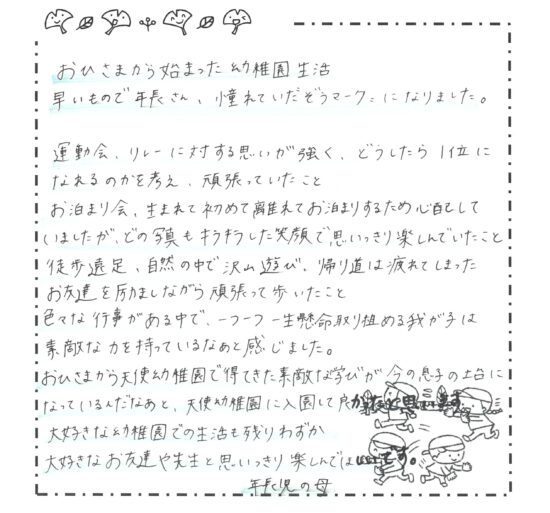 おひさまから始まった幼稚園生活
早いもので年長さん、憧れていたぞうマークになりました。
運動会、リレーに対する思いが強く、どうしたら1位に
なれるのかを考え、頑張っていたこと
お泊まり会、生まれて初めて離れてお泊まりするため心配して
いましたが、どの写真もキラキラした笑顔で思いっきり楽しんでいたこと
徒歩遠足、自然の中で沢山遊び、帰り道は疲れてしまった
お友達を励ましながら頑張って歩いたこと
色々な行事がある中で、一つ一つ一生懸命取り組める我が子は
素敵な力を持っているなあと感じました。
おひさまから天使幼稚園で得てきた素敵な学びが今の息子の土台に
なっているんだなあと、天使幼稚園に入園して良かったと思います
大好きな幼稚園での生活も残りわずか
大好きなお友達や先生と思いっきり楽しんでほしいです。
年長児の母